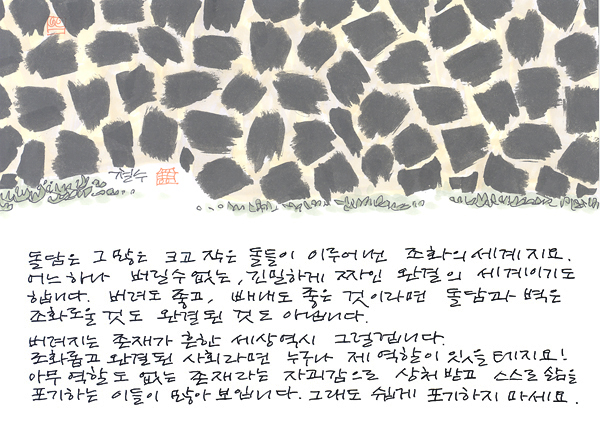 철수
돌담은 그 많은 크고 작은 돌들이 이루어낸 조화의 세계지요.
어느 하나 버릴 수 없는, 긴밀하게 짜인 완결의 세계이기도
합니다. 버려도 좋고, 빼내도 좋은 것이라면 돌담과 벽은
조화로울 것도 완결된 것도 아닙니다.
버려지는 존재가 흔한 세상 역시 그럴겁니다.
조화롭고 완결된 사회라면 누구나 제 역할이 있을테지요!
아무 역할도 없는 존재라는 자괴감으로 상처받고 스스로 삶을
포기하는 이들이 많아 보입니다. 그래도 쉽게 포기하지 마세요.